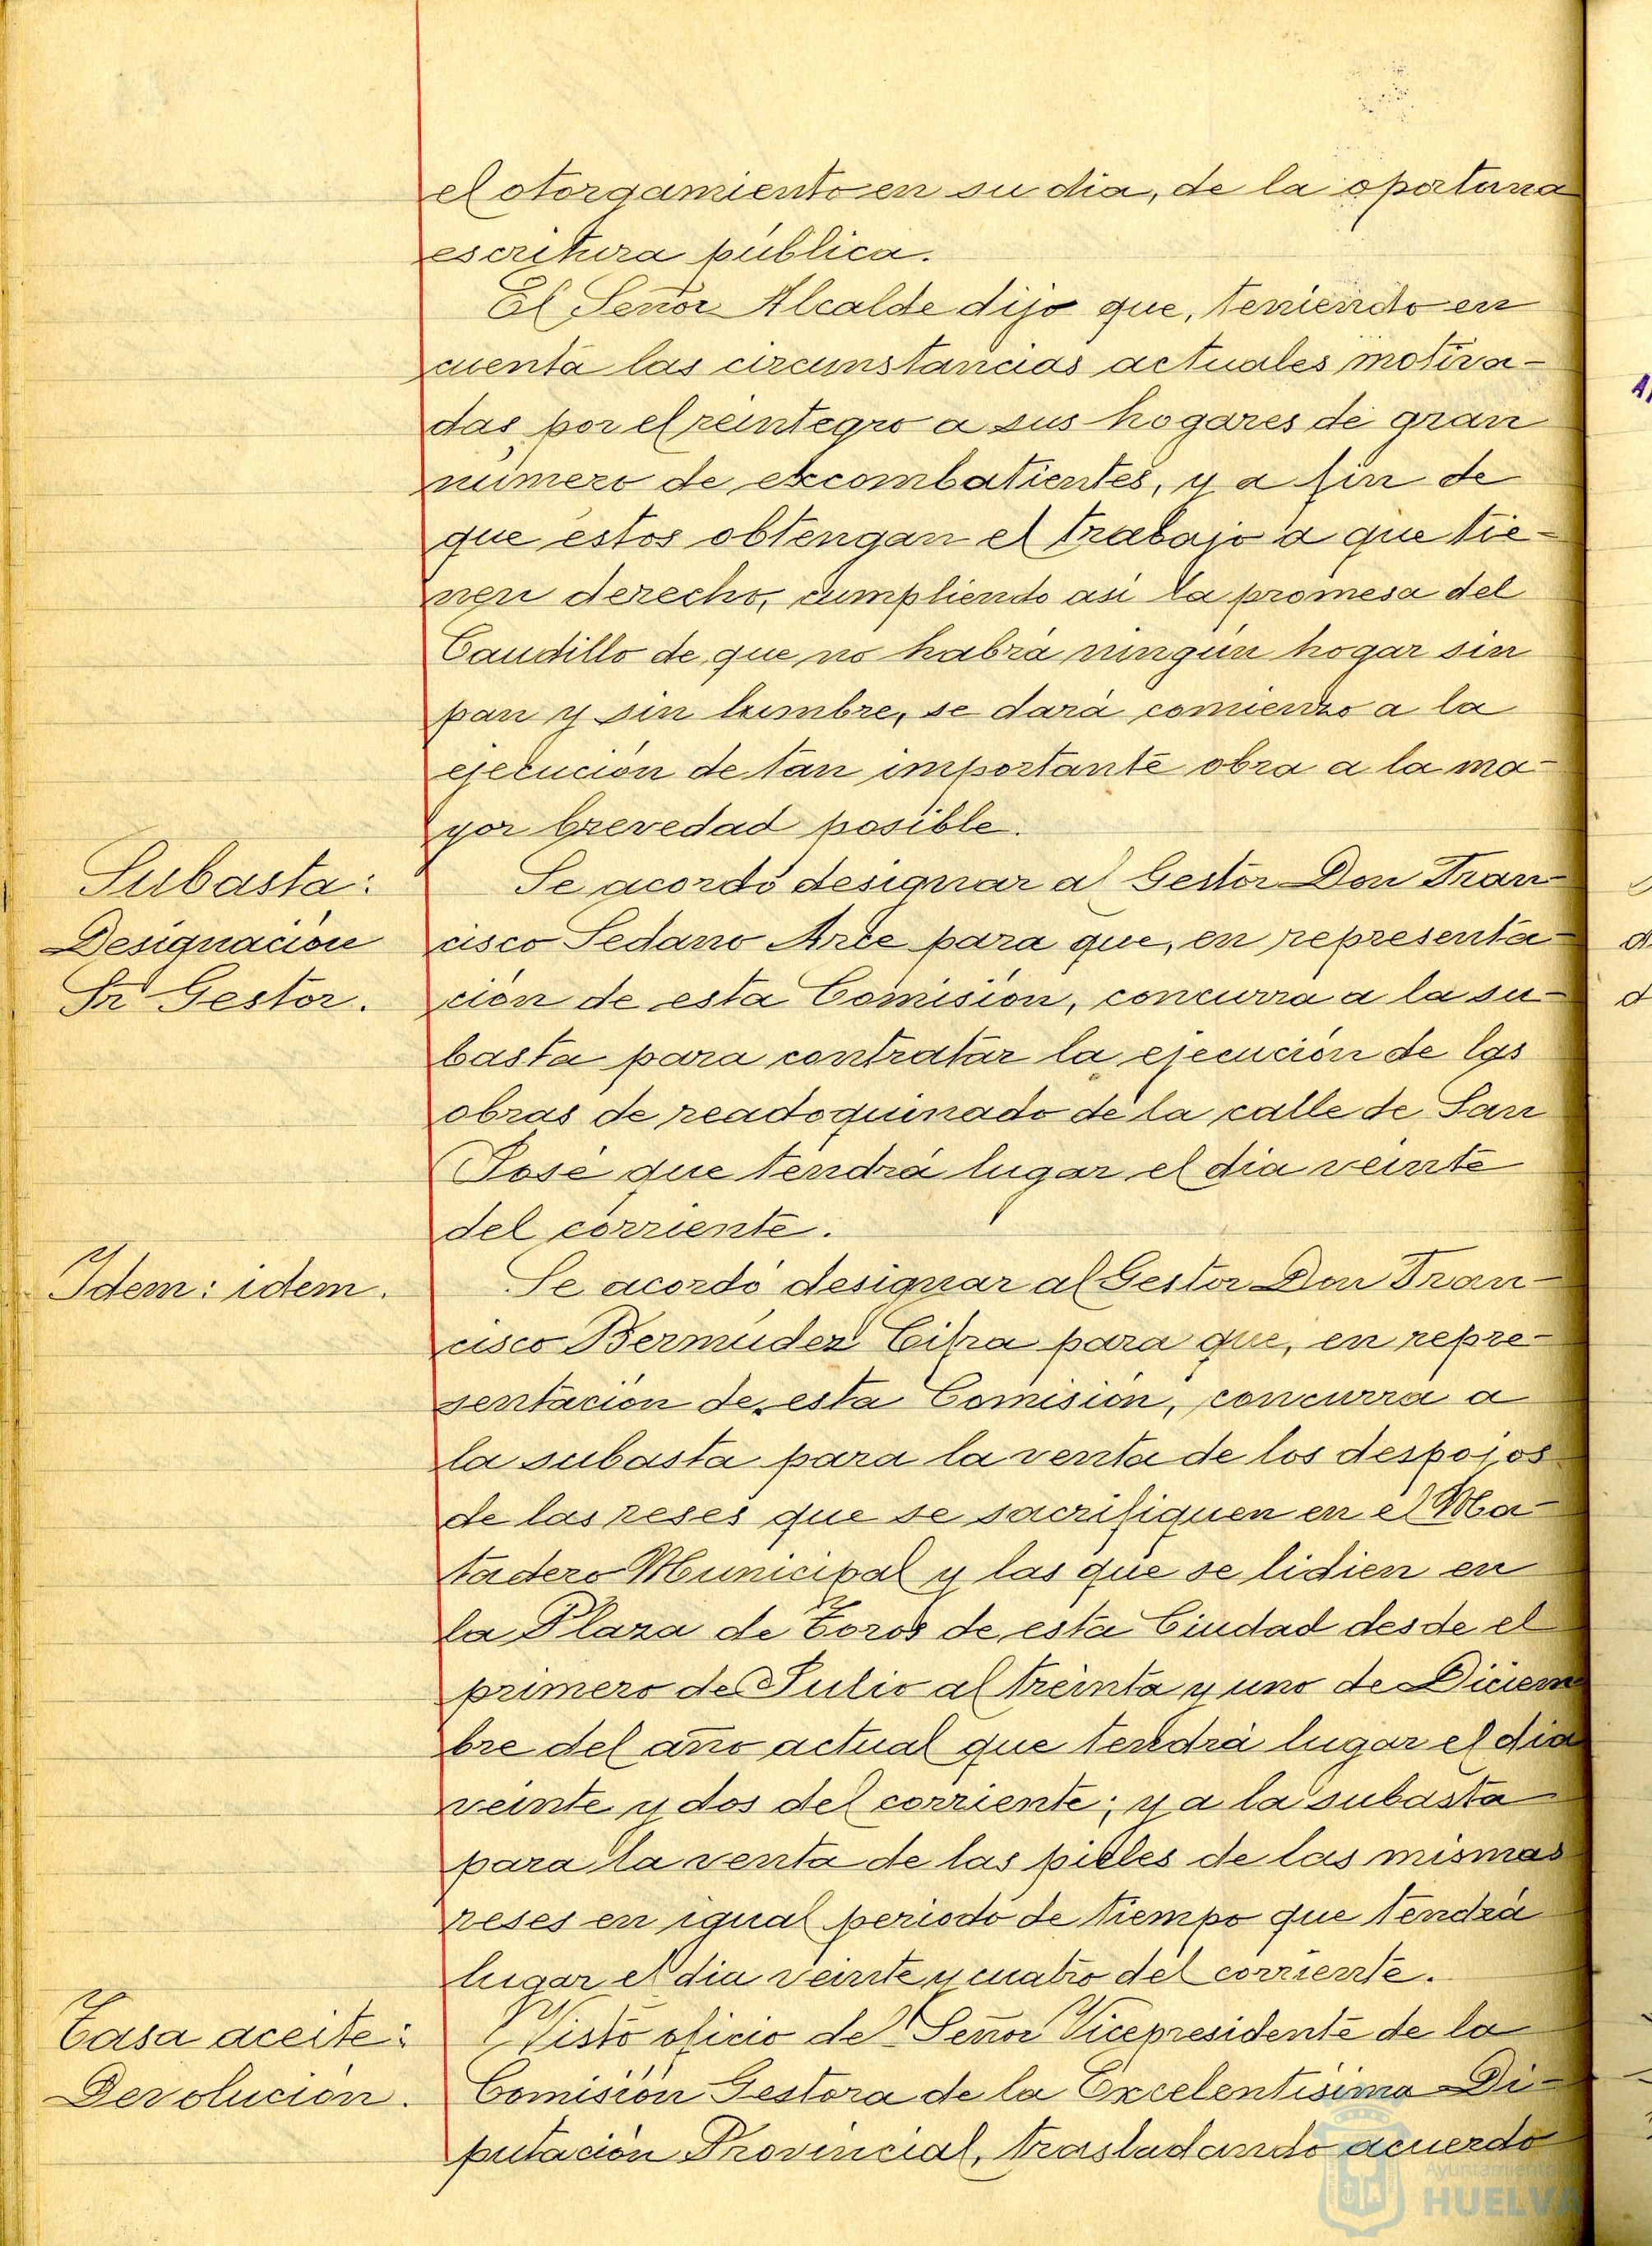 el otorgamiento en su dia, de la oportuna
escritura pública.
El Señor Alcalde dijo que, teniendo en
cuenta las circunstancias actuales motiva-
das por el reintegro a sus hogares de gran
número de excombatientes, y a fin de
que éstos obtengan el trabajo a que tie-
nen derecho, cumpliendo asi la promesa del
Caudillo de que no habrá ningún hogar sin
pan y sin lumbre, se dará comienzo a la
ejecución de tan importante obra a la ma-
yor brevedad posible.
Subasta:
Designación
Sr Gestor.
Se acordó designar al Gestor Don Fran-
cisco Sedano Arce para que, en representa-
ción de esta Comisión, concurra a la su-
basta para contratar la ejecución de las
obras de readoquinado de la calle de San
José que tendrá lugar el dia veinte
del corriente.
Idem: idem.
Se acordó designar al Gestor Don Fran-
cisco Bermúdez Cifra para que, en repre-
sentación de esta Comisión, concurra a
la subasta para la venta de los despojos
de las reses que se sacrifiquen en el Ma-
tadero Municipal y las que se lidien en
la Plaza de Toros de esta Ciudad desde el
primero de Julio al treinta y uno de Diciem
bre del año actual que tendrá lugar el dia
veinte y dos del corriente; y a la subasta
para la venta de las pieles de las mismas
reses en igual periodo de tiempo que tendrá
lugar el dia veinte y cuatro del corriente.
Tasa aceite:
Devolución.
Visto oficio del Señor Vicepresidente de la
Comisión Gestora de la Excelentísima Di-
putación Provincial, trasladando acuerdo
Ayuntamiento de
HUELVA